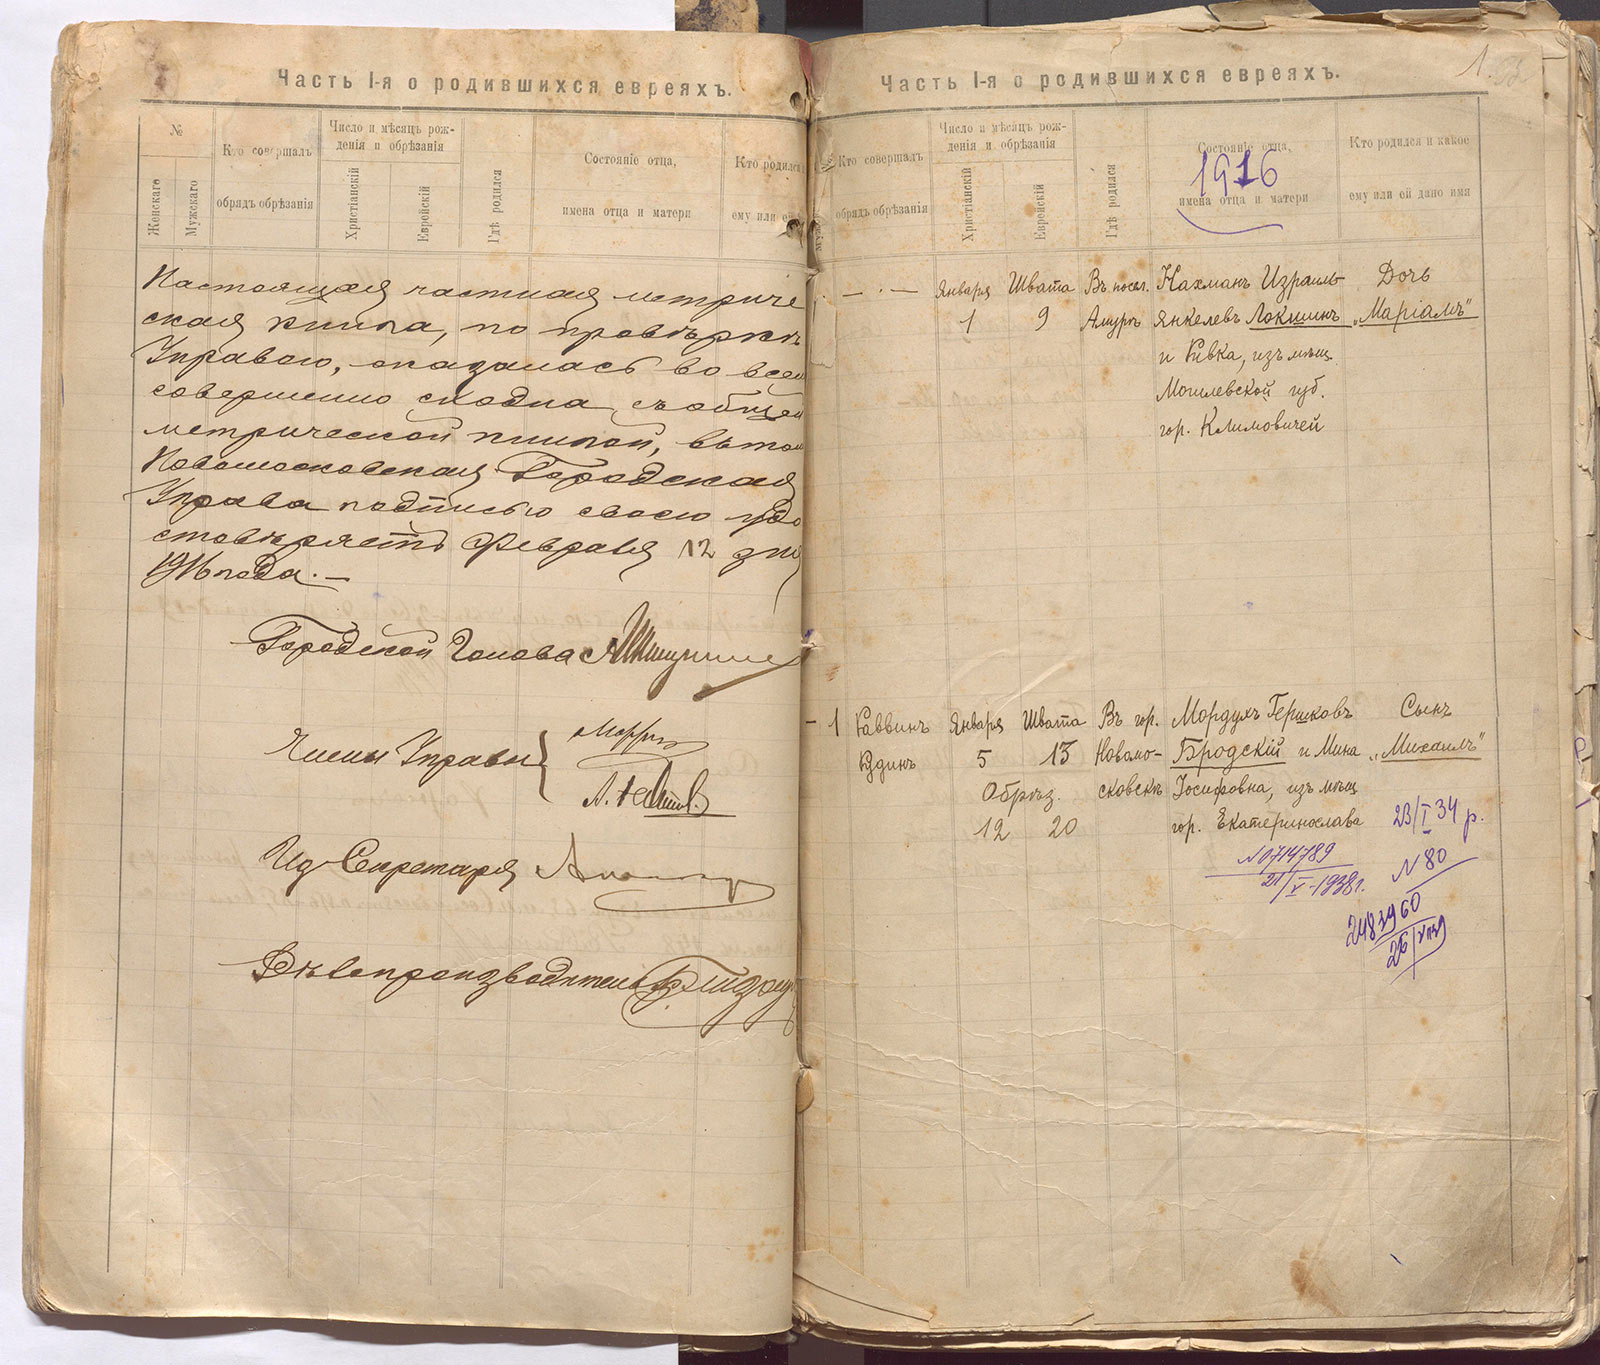 Часть I-я о родившихся евреяхъ.
№
Женскаго
Мужскаго
Кто совершалъ
обрядъ обрѣзанія
Число и мѣсяцъ рож-
денія и обрѣзанія
Христіанскій
Еврейскій
Гдѣ родился
Состояніе отца,
имена отца и матери
Кто родился
ему или ей
Настоящая частная метриче
ская книга, по провѣркѣ
Управою, оказалась во всем
совершенно сходна съ общей
метрической книгой, въ том
Новомосковская Городская
Управа подписью своею удо
стовѣряетъ Февраля 12 дня
года.
Городской Голова
Члены Управы
Ид Секретаря
Дѣлопроизводитель
Часть I-я о родившихся евреяхъ.
1.
Кто совершалъ
обрядъ обрѣзанія
Число и мѣсяцъ рож-
денія и обрѣзанія
Христіанскій
Еврейскій
Гдѣ родился
Состояніе отца,
1916
имена отца и матери
Кто родился и какое
ему или ей дано имя
— · — Января Швата Въ посел. Нахманъ Израиль- Дочь
1 9 Амуръ Янкелевъ Локшинъ „Маріамъ"
и Ривка, изъ мѣщ.
Могилевской губ.
гор. Климовичей
– 1 Раввинъ Января Швата Въ гор. Мордухъ Гершковъ Сынъ
Юдинъ 5 13 Новомо- Бродскій и Мина „Михаилъ"
Обрѣз. сковскѣ Іосифовна, изъ мѣщ
12 20 гор. Екатеринослава 23/I 34 р.
№0714789 № 80
21/V-1938г.
2483960
26/